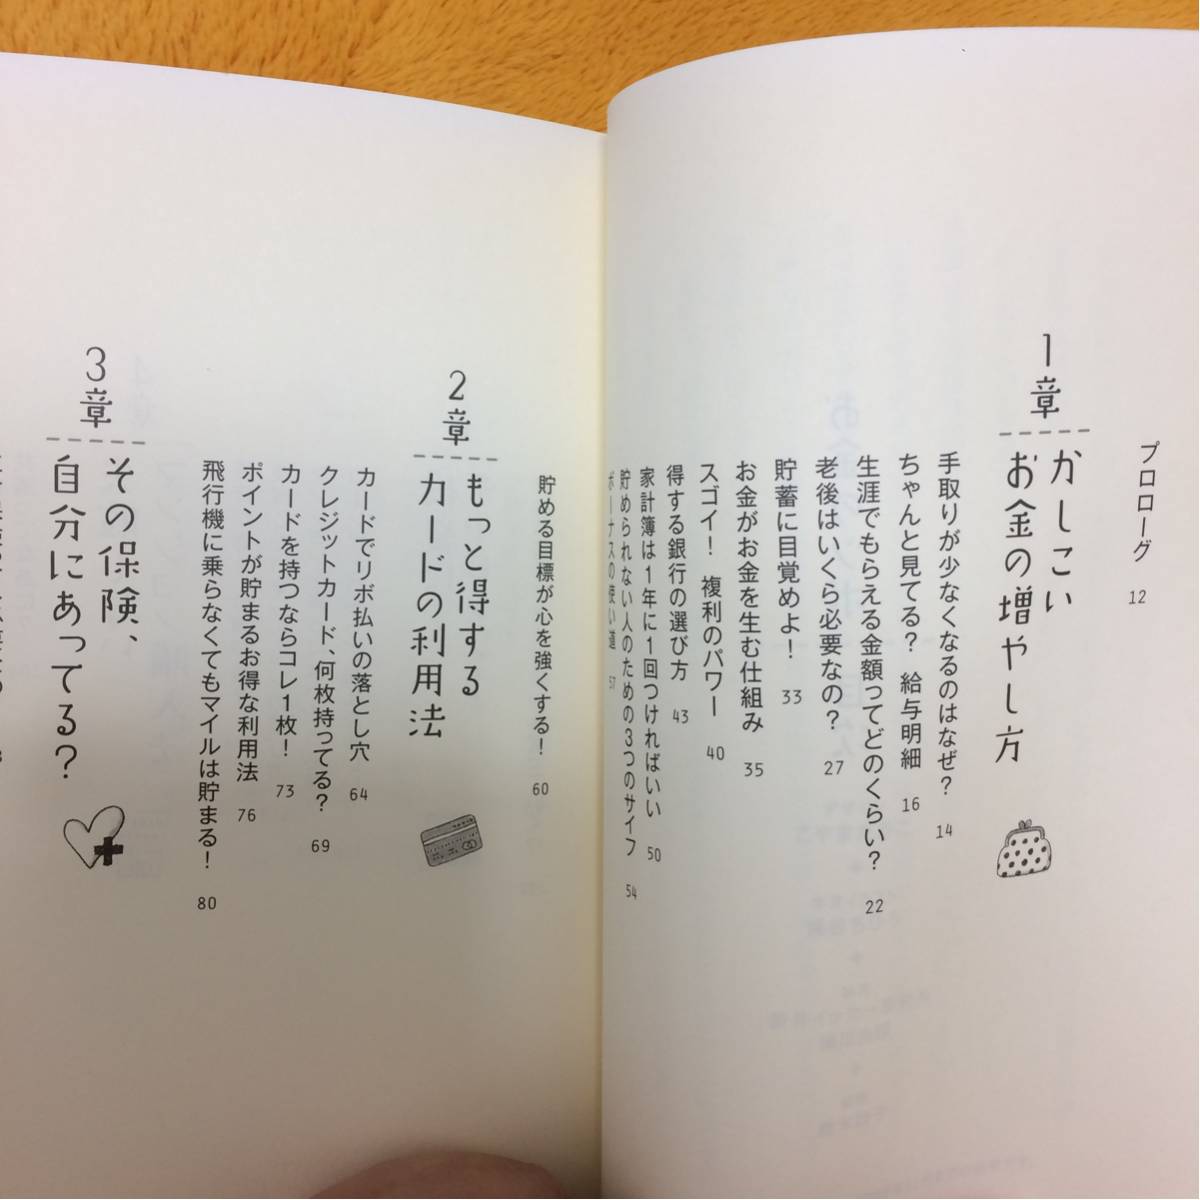 プロローグ 12
1章
かしこい
お金の増やし方
手取りが少なくなるのはなぜ? 14
ちゃんと見てる? 給与明細 16
生涯でもらえる金額ってどのくらい? 22
老後はいくら必要なの? 27
貯蓄に目覚めよ! 33
お金がお金を生む仕組み 35
スゴイ! 複利のパワー 40
得する銀行の選び方 43
家計簿は1年に1回つければいい 50
貯められない人のための3つのサイフ 54
ボーナスの使い道 57
貯める目標が心を強くする! 60
2章
もっと得する
カードの利用法
カードでリボ払いの落とし穴 64
クレジットカード、何枚持ってる? 69
カードを持つならコレ1枚! 73
ポイントが貯まるお得な利用法 76
飛行機に乗らなくてもマイルは貯まる! 80
3章
その保険、
自分にあってる?